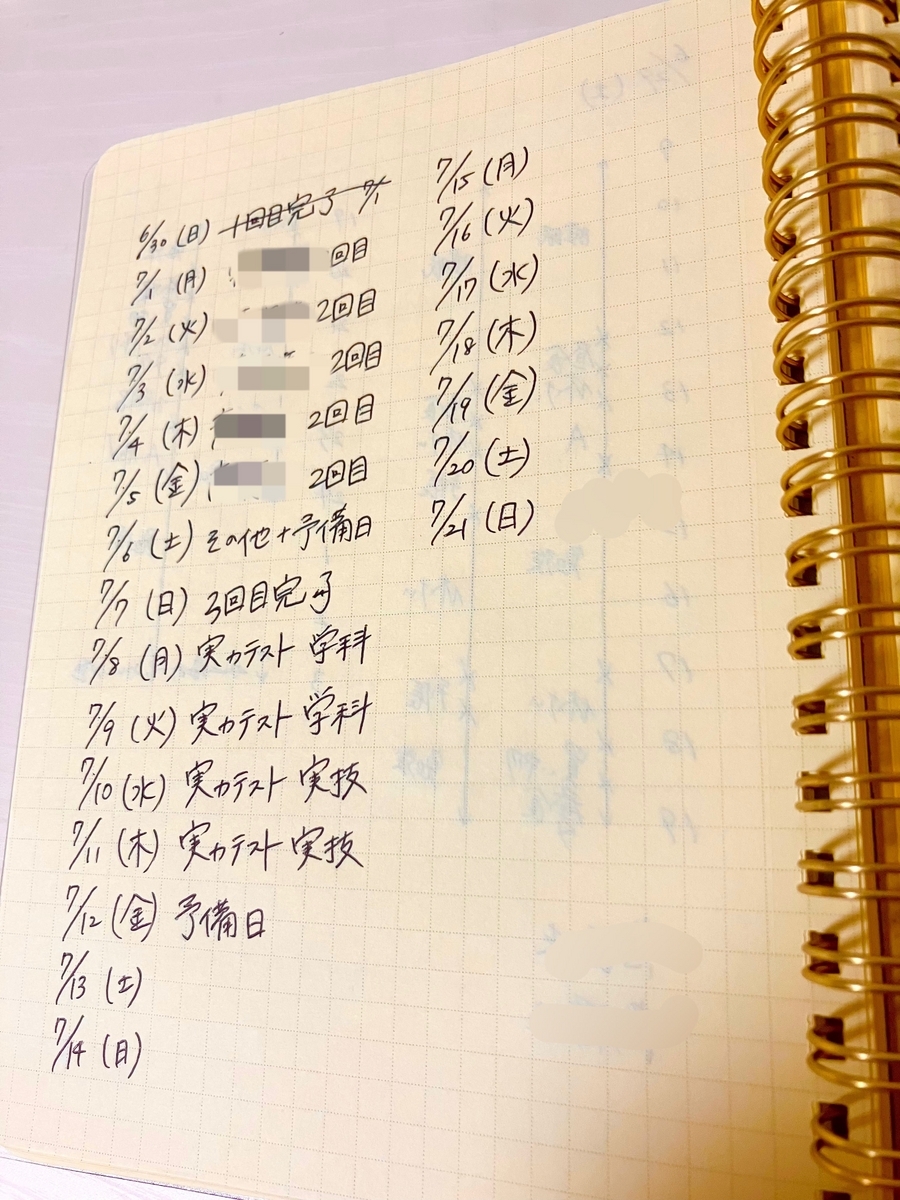 6/30 (日) 1回目完了 7/1
7/1 (月) 回目
7/2 (火) 2回目
7/3 (水) 2回目
7/4 (木) 2回目
7/5 (金) 2回目
7/6 (土) その他+予備日
7/7 (日) 3回目完了
7/8 (月) 実力テスト 学科
7/9 (火) 実力テスト 学科
7/10 (水) 実力テスト 実技
7/11 (木) 実力テスト 実技
7/12 (金) 予備日
7/13 (土)
7/14 (日)
7/15 (月)
7/16 (火)
7/17 (水)
7/18 (木)
7/19 (金)
7/20 (土)
7/21 (日)